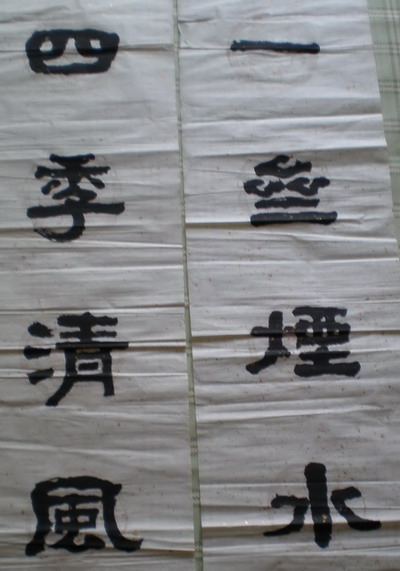 一丝煙水
四季清風